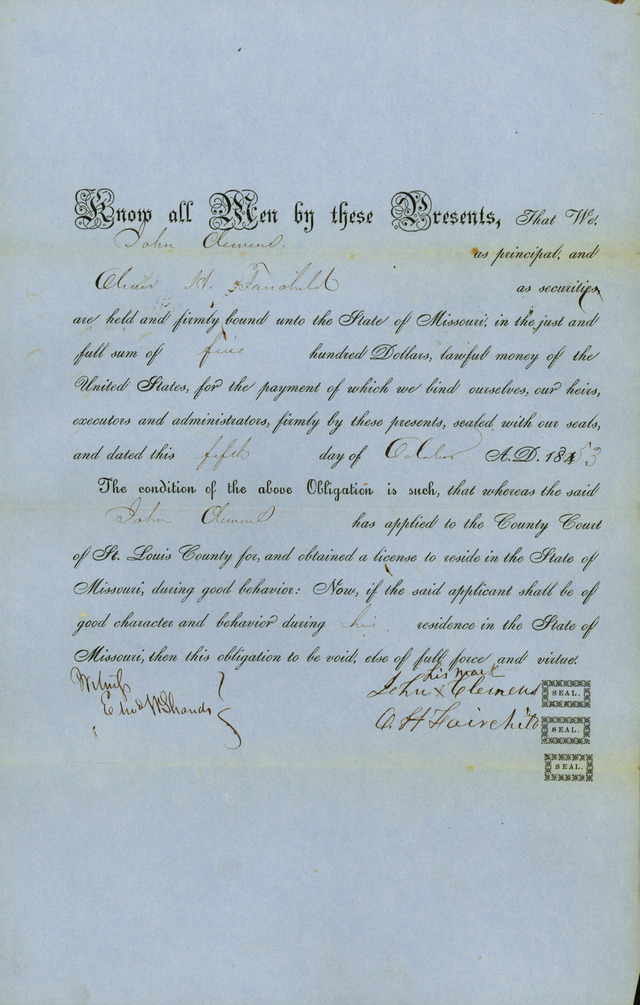 Know all Men by these Presents, That We,
John Clemens.
as principal, and
Oliver H. Fairchild as securities
are held and firmly bound unto the State of Missouri, in the just and
full sum of five hundred Dollars, lawful money of the
United States, for the payment of which we bind ourselves, our heirs,
executors and administrators, firmly by these presents, sealed with our seals,
and dated this fifth day of October A.D. 1853
The condition of the above Obligation is such, that whereas the said
John Clemens has applied to the County Court
of St. Louis County for, and obtained a license to reside in the State of
Missouri, during good behavior: Now, if the said applicant shall be of
good character and behavior during his residence in the State of
Missouri, then this obligation to be void, else of full force and virtue.
his mark
John x Clemens SEAL.
Witness
O. H. Fairchild SEAL.
SEAL.